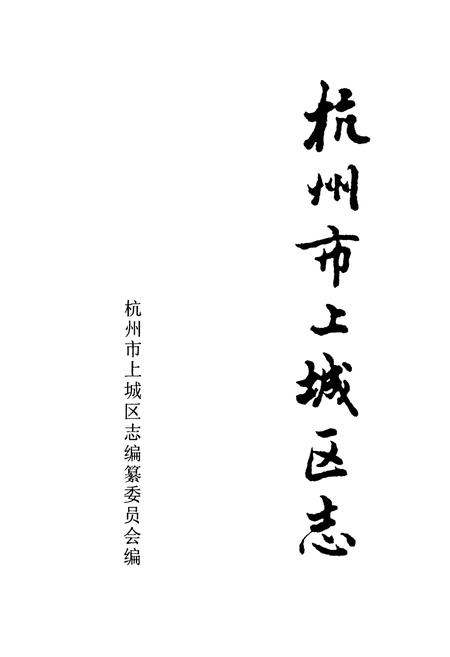 杭州市上城区志
杭州市上城区志编纂委员会编